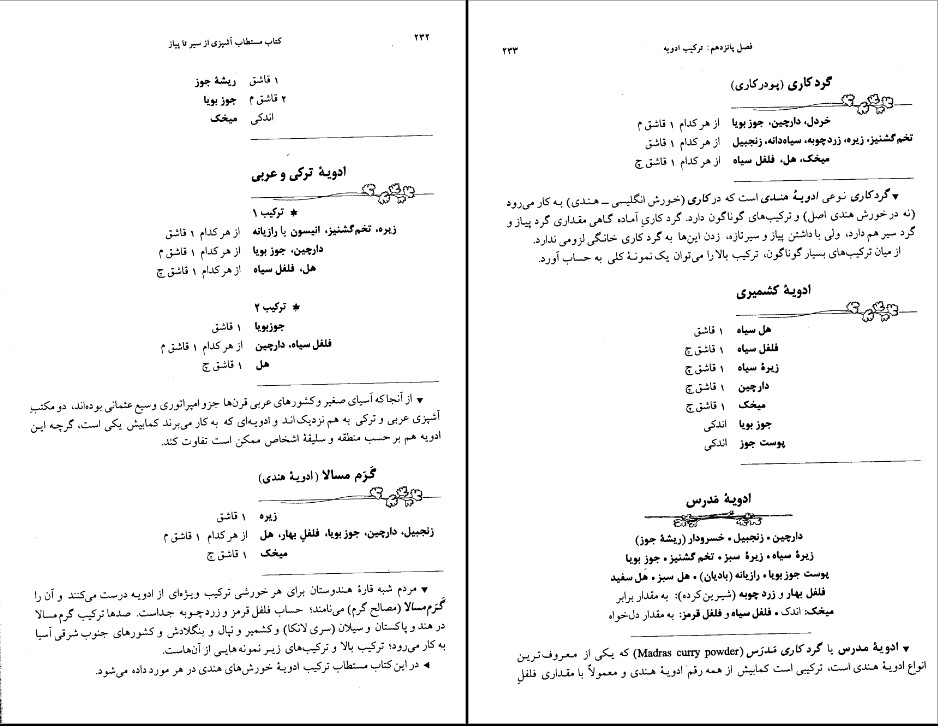 ۲۳۲
کتاب مستطاب آشپزی از سیر تا پیاز
۱ قاشق ریشهٔ جوز
۲ قاشق م جوز بویا
اندکی میخک
ادویهٔ ترکی و عربی
* ترکیب ۱
زیره، تخم‌گشنیز، انیسون یا رازیانه از هر کدام ۱ قاشق
دارچین، جوز بویا از هر کدام ۱ قاشق م
هل، فلفل سیاه از هر کدام ۱ قاشق چ
* ترکیب ۲
جوزبویا ۱ قاشق
فلفل سیاه، دارچین از هر کدام ۱ قاشق م
هل ۱ قاشق چ
▼ از آنجا که آسیای صغیر و کشورهای عربی قرن‌ها جزو امپراتوری وسیع عثمانی بوده‌اند، دو مکتب
آشپزی عربی و ترکی به هم نزدیک‌اند و ادویه‌ای که به کار می‌برند کمابیش یکی است، گرچه این
ادویه هم بر حسب منطقه و سلیقهٔ اشخاص ممکن است تفاوت کند.
گَرَم مسالا (ادویهٔ هندی)
زیره ۱ قاشق
زنجبیل، دارچین، جوز بویا، فلفل بهار، هل از هر کدام ۱ قاشق م
میخک ۱ قاشق چ
▼ مردم شبه قارهٔ هندوستان برای هر خورشی ترکیب ویژه‌ای از ادویه درست می‌کنند و آن را
گَرَم‌مسالا (مصالح گرم) می‌نامند؛ حساب فلفل قرمز و زردچوبه جداست. صدها ترکیب گرم‌مسالا
در هند و پاکستان و سیلان (سری لانکا) و کشمیر و نپال و بنگلادش و کشورهای جنوب شرقی آسیا
به کار می‌رود؛ ترکیب بالا و ترکیب‌های زیر نمونه‌هایی از آن‌هاست.
◀ در این کتاب مستطاب ترکیب ادویهٔ خورش‌های هندی در هر مورد داده می‌شود.
فصل پانزدهم: ترکیب ادویه
۲۳۳
گرد کاری (پودر کاری)
خردل، دارچین، جوز بویا از هر کدام ۱ قاشق م
تخم‌گشنیز، زیره، زردچوبه، سیاه‌دانه، زنجبیل از هر کدام ۱ قاشق
میخک، هل، فلفل سیاه از هر کدام ۱ قاشق چ
▼ گرد کاری نوعی ادویهٔ هندی است که در کاری (خورش انگلیسی ـ هندی) به کار می‌رود
(نه در خورش هندی اصل) و ترکیب‌های گوناگون دارد. گرد کاری آماده گاهی مقداری گرد پیاز و
گرد سیر هم دارد، ولی با داشتن پیاز و سیر تازه، زدن این‌ها به گرد کاری خانگی لزومی ندارد.
از میان ترکیب‌های بسیار گوناگون، ترکیب بالا را می‌توان یک نمونهٔ کلی به حساب آورد.
ادویهٔ کشمیری
هل سیاه ۱ قاشق
فلفل سیاه ۱ قاشق چ
زیرهٔ سیاه ۱ قاشق چ
دارچین ۱ قاشق چ
میخک ۱ قاشق چ
جوز بویا اندکی
پوست جوز اندکی
ادویهٔ مَدرس
دارچین • زنجبیل • خسرودار (ریشهٔ جوز)
زیرهٔ سیاه • زیرهٔ سبز • تخم گشنیز • جوز بویا
پوست جوز بویا • رازیانه (بادیان) • هل سبز • هل سفید
فلفل بهار و زرد چوبه (شیرین‌کرده): به مقدار برابر
میخک: اندک • فلفل سیاه و فلفل قرمز: به مقدار دل‌خواه
▼ ادویهٔ مدرس یا گرد کاری مَدرَس (Madras curry powder) که یکی از معروف‌ترین
انواع ادویهٔ هندی است، ترکیبی است کمابیش از همه رقم ادویهٔ هندی و معمولاً با مقداری فلفلِ